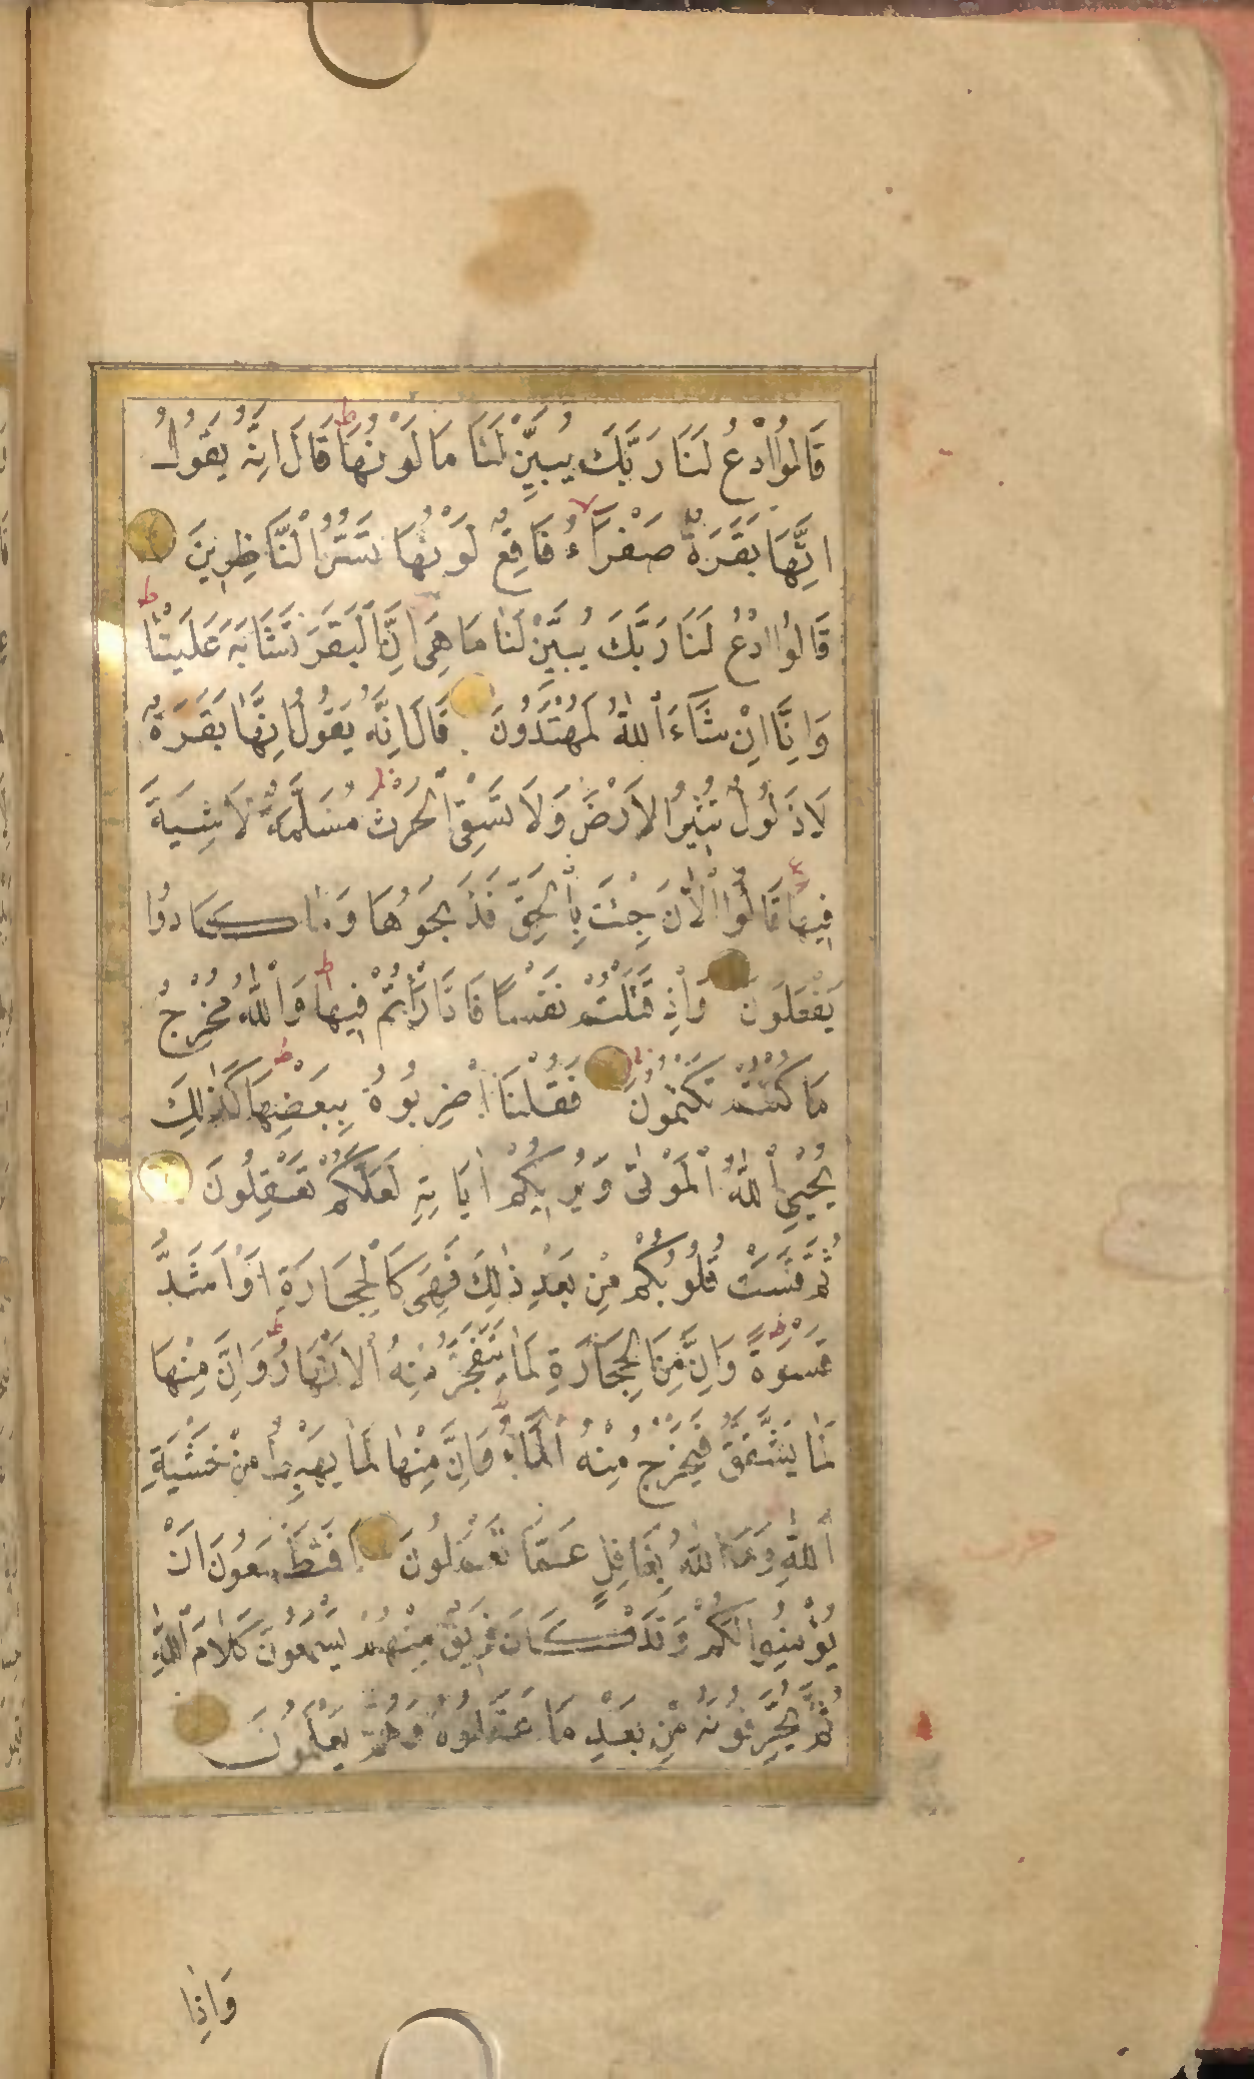 قَالُوا ادْعُ لَنَا رَبَّكَ يُبَيِّنْ لَنَا مَا لَوْنُهَا ط قَالَ اِنَّهُ يَقُولُ
اِنَّهَا بَقَرَةٌ صَفْرَاءُ لا فَاقِعٌ لَوْنُهَا تَسُرُّ النَّاظِرِينَ
قَالُوا ادْعُ لَنَا رَبَّكَ يُبَيِّنْ لَنَا مَا هِيَ اِنَّ الْبَقَرَ تَشَابَهَ عَلَيْنَا ط
وَاِنَّا اِنْ شَاءَ اللّٰهُ لَمُهْتَدُونَ قَالَ اِنَّهُ يَقُولُ اِنَّهَا بَقَرَةٌ
لَا ذَلُولٌ تُثِيرُ الْاَرْضَ وَلَا تَسْقِي الْحَرْثَ مُسَلَّمَةٌ لَا شِيَةَ
فِيهَا قَالُوا الْاٰنَ جِئْتَ بِالْحَقِّ فَذَبَحُوهَا وَمَا كَادُوا
يَفْعَلُونَ وَاِذْ قَتَلْتُمْ نَفْسًا فَادَّارَأْتُمْ فِيهَا ط وَاللّٰهُ مُخْرِجٌ
مَا كُنْتُمْ تَكْتُمُونَ فَقُلْنَا اضْرِبُوهُ بِبَعْضِهَا ط كَذٰلِكَ
يُحْيِي اللّٰهُ الْمَوْتٰى وَيُرِيكُمْ اٰيَاتِهِ لَعَلَّكُمْ تَعْقِلُونَ
ثُمَّ قَسَتْ قُلُوبُكُمْ مِنْ بَعْدِ ذٰلِكَ فَهِيَ كَالْحِجَارَةِ اَوْ اَشَدُّ
قَسْوَةً ط وَاِنَّ مِنَ الْحِجَارَةِ لَمَا يَتَفَجَّرُ مِنْهُ الْاَنْهَارُ ط وَاِنَّ مِنْهَا
لَمَا يَشَّقَّقُ فَيَخْرُجُ مِنْهُ الْمَاءُ ط وَاِنَّ مِنْهَا لَمَا يَهْبِطُ مِنْ خَشْيَةِ
اللّٰهِ وَمَا اللّٰهُ بِغَافِلٍ عَمَّا تَعْمَلُونَ اَفَتَطْمَعُونَ اَنْ
يُؤْمِنُوا لَكُمْ وَقَدْ كَانَ فَرِيقٌ مِنْهُمْ يَسْمَعُونَ كَلَامَ اللّٰهِ
ثُمَّ يُحَرِّفُونَهُ مِنْ بَعْدِ مَا عَقَلُوهُ وَهُمْ يَعْلَمُونَ
وَاِذَا